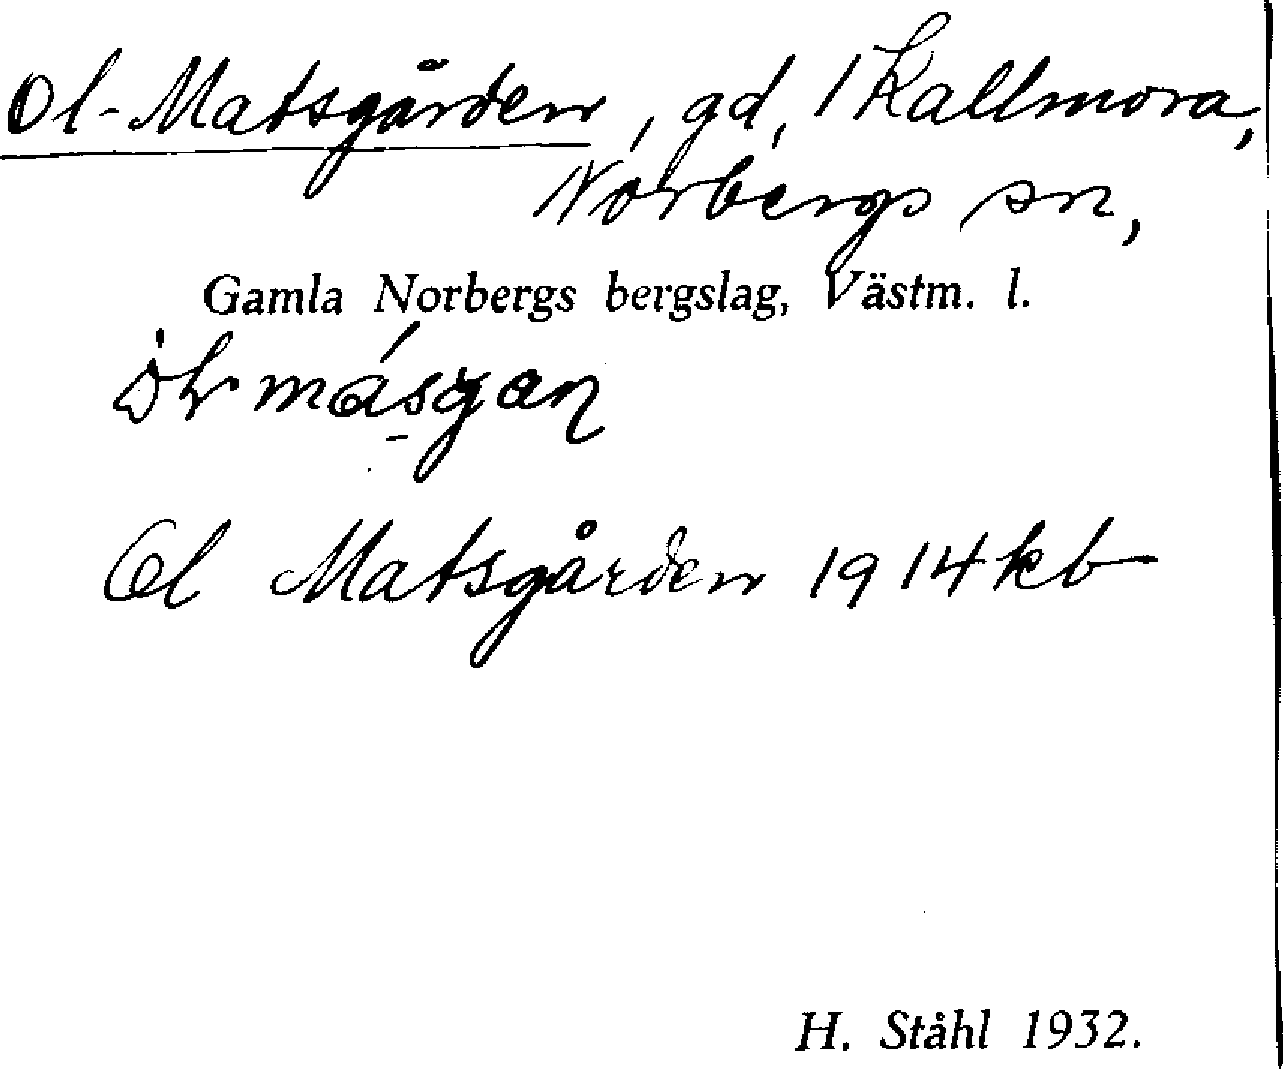 Ol-Matsgården, gd, 1 Kallmora,
Norbergs sn,
Gamla Norbergs bergslag, Västm. l.
Ol Matsgården 1914 kb
H. Ståhl 1932.